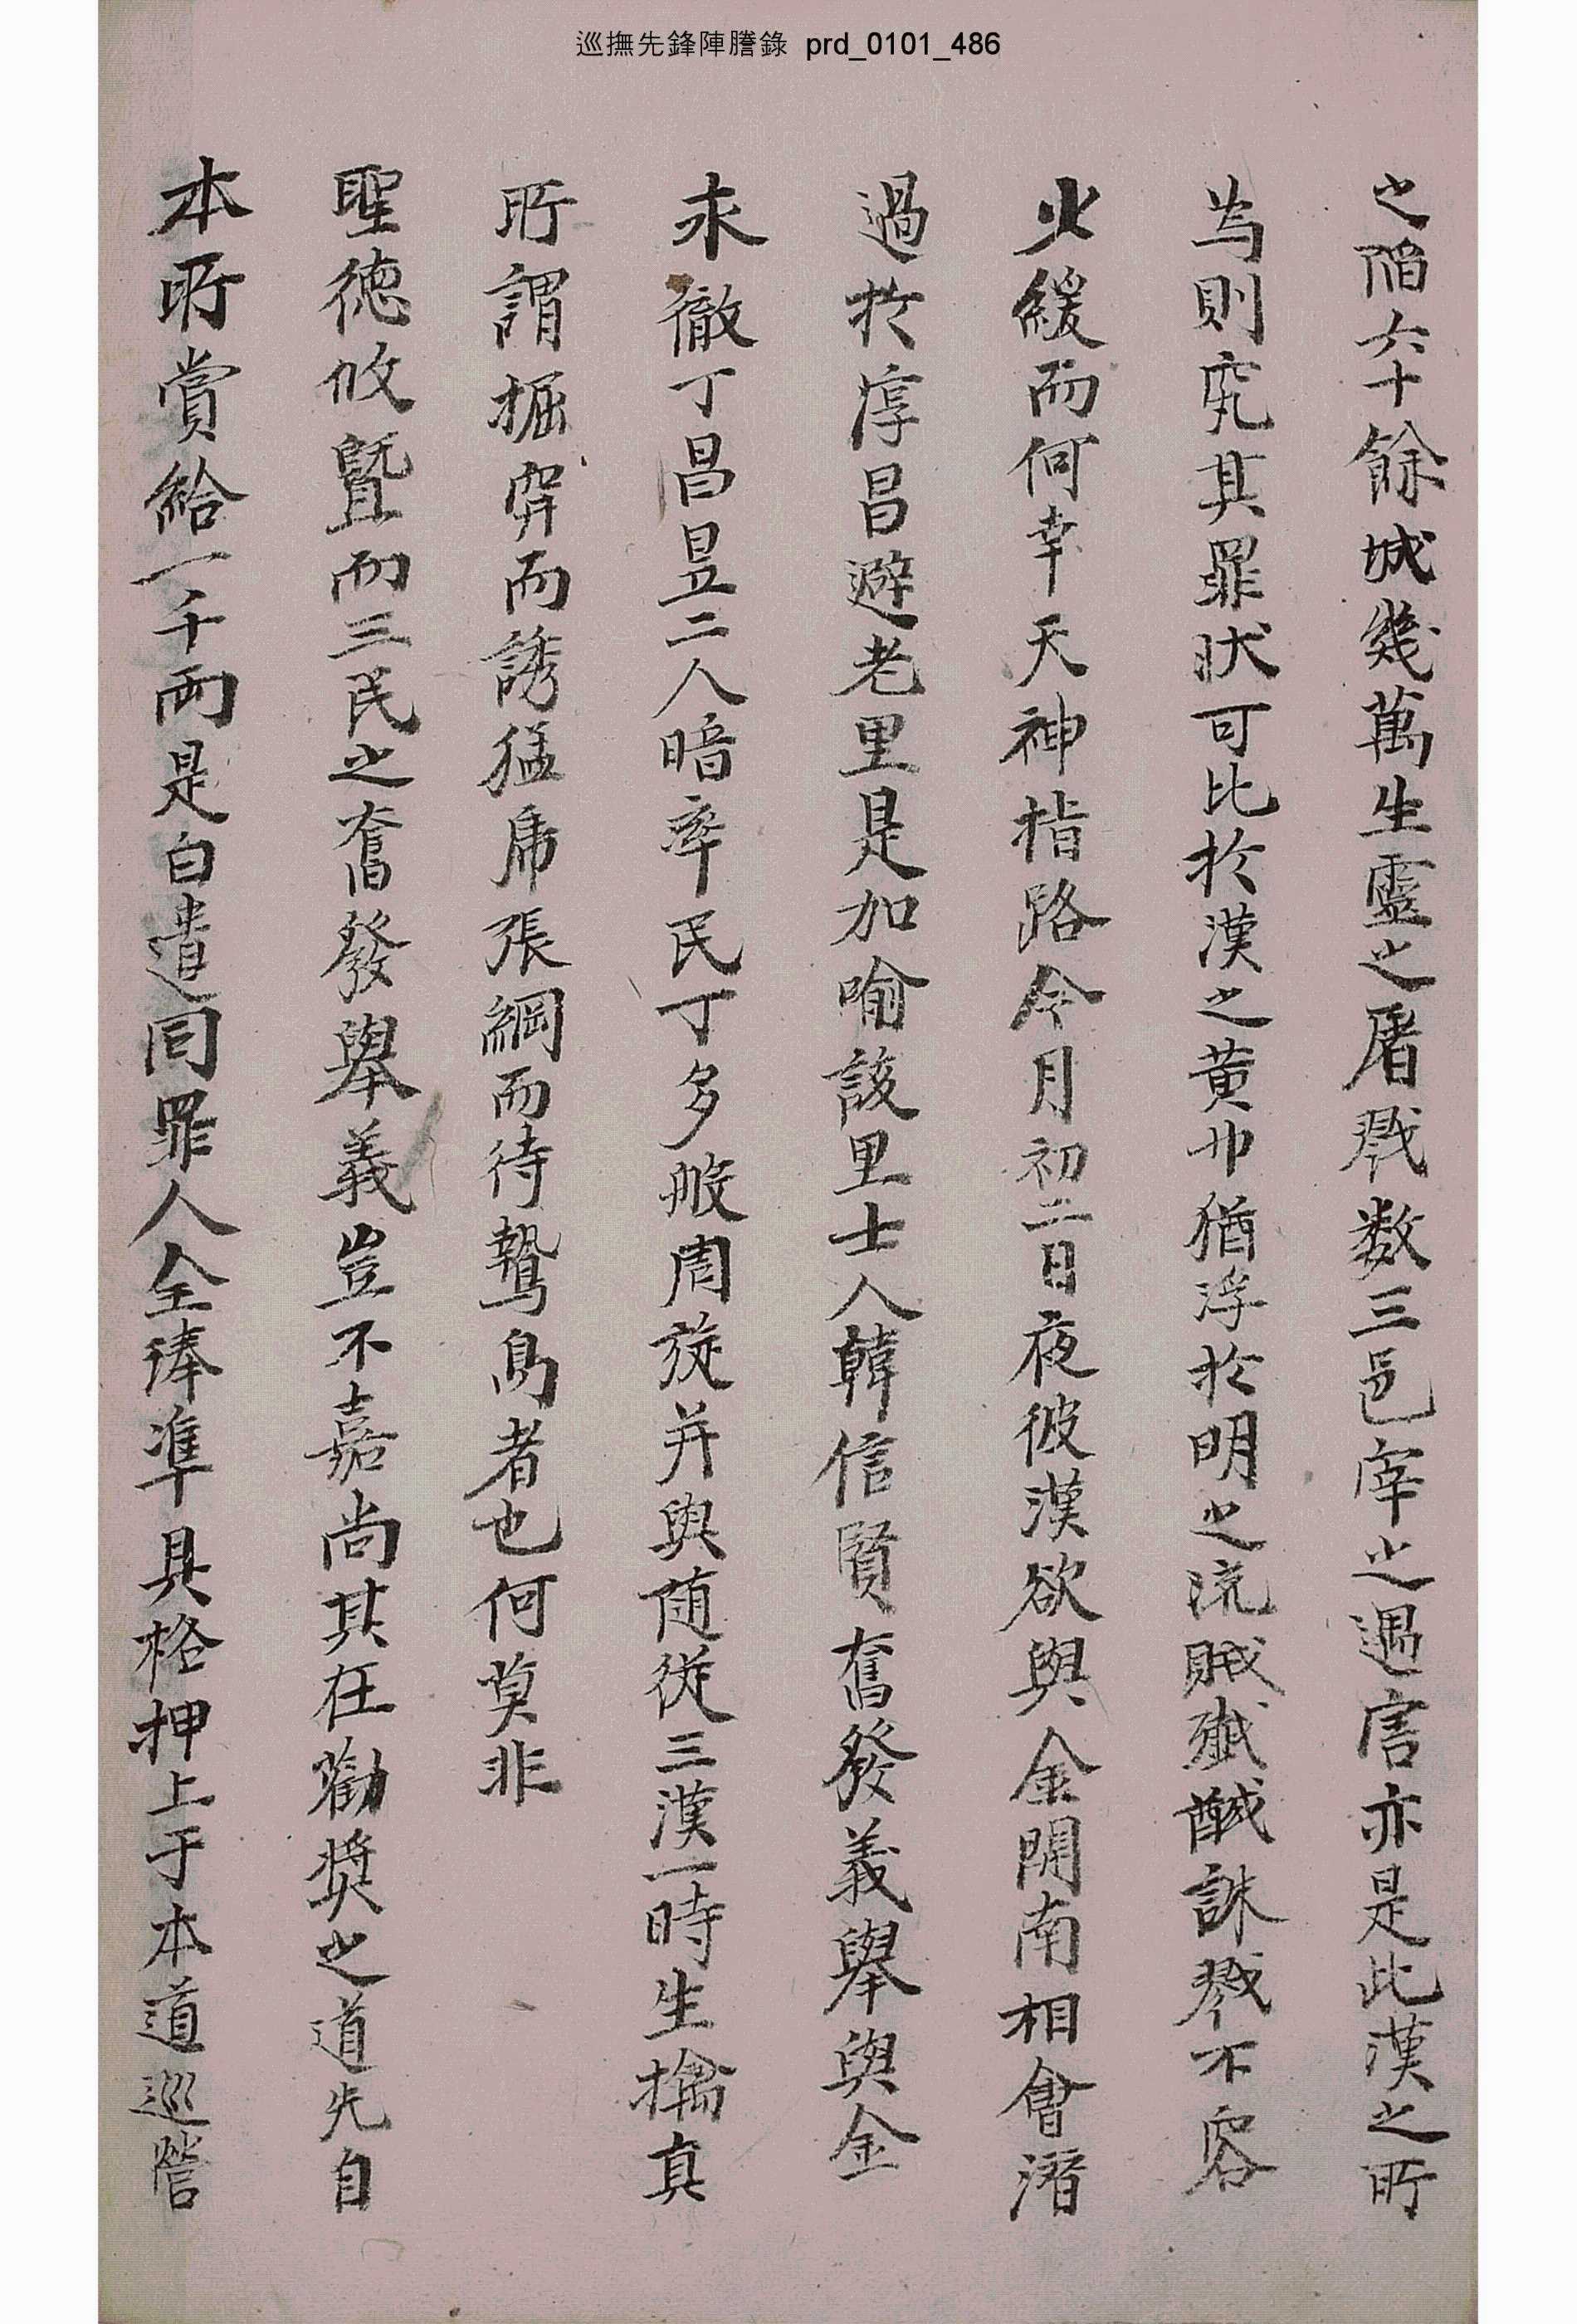 巡撫先鋒陣謄錄 prd_0101_486
之陷六十餘城幾萬生靈之屠戮数三邑宰之遇害亦是此漢之所
為則究其罪狀可比於漢之黃巾猶浮於明之流賊殲馘誅戮不容
少緩而何幸天神指路今月初二日夜彼漢欲與金開南相會潛
過於淳昌避老里是加喻該里士人韓信賢奮發義舉與金
永徹丁昌昱二人暗率民丁多般周旋并與随從三漢一時生擒真
所謂掘穽而誘猛虎張網而待鷙鳥者也何莫非
聖德攸曁而三民之奮發舉義豈不嘉尚其在勸奬之道先自
本所賞給一千兩是白遣同罪人全琫準具格押上于本道巡營